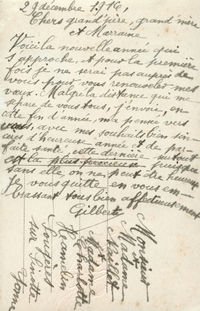 29 décembre 1916,
Chers grand'père, grand'mère
et Marraine
Voici la nouvelle année qui
s'approche, et pour la première
fois je ne serai pas auprès de
vous, pour vous renouveler mes
vœux. Malgré la distance qui me
sépare de vous tous, j'envoie, en
cette fin d'année, ma pensée vers
vous, avec mes souhaits bien sin
cères d'heureuse année et de par
faite santé cette dernière surtout
est la plus précieuse puisque
sans elle on ne peut être heureux
Je vous quitte en vous em-
brassant tous bien affectueusement
Gilberte
Monsieur
Madame
Hamelin
Fougères
sur
Yonne